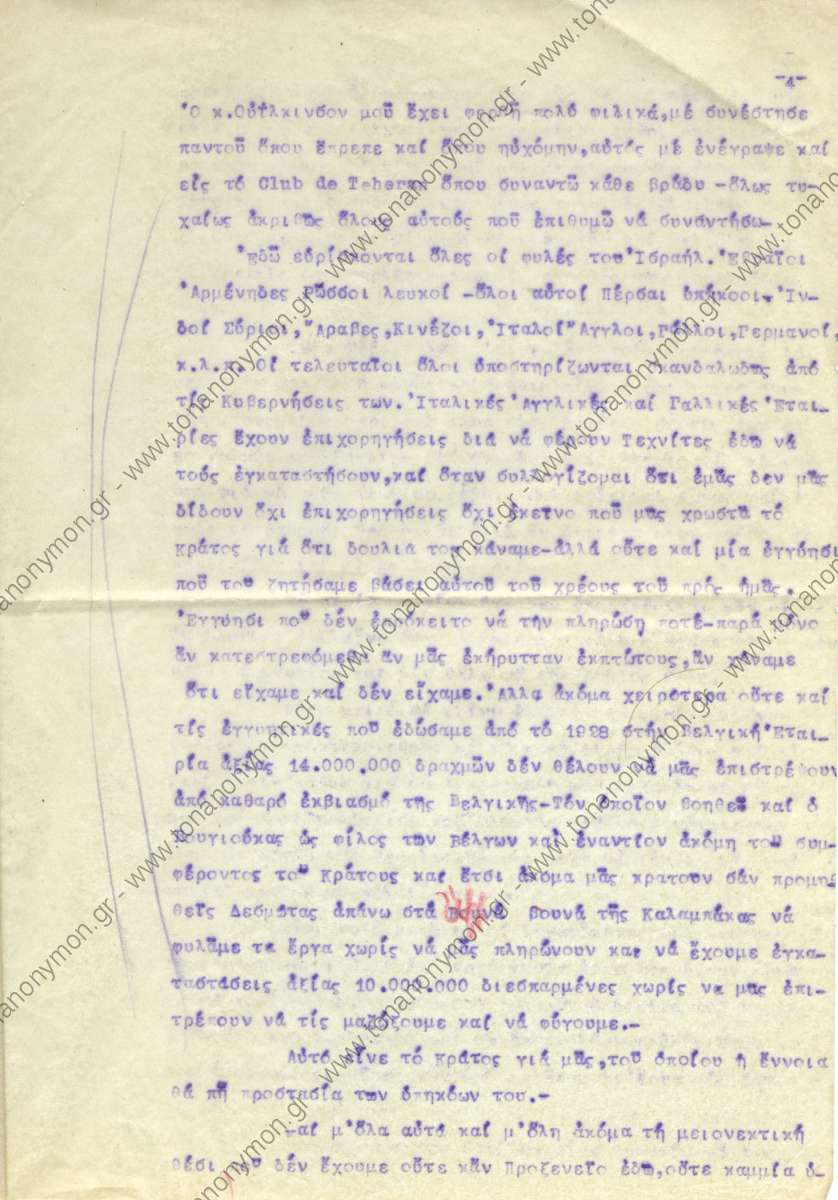 -4-
Ὁ κ.Οὐΐλκινσον μοῦ ἔχει φερθῆ πολύ φιλικά,μέ συνέστησε
παντοῦ ὅπου ἔπρεπε καί ὅπου ηὐχόμην,αὐτός μέ ἐνέγραψε καί
εἰς τό Club de Teheran ὅπου συναντῶ κάθε βράδυ -ὅλως τυ-
χαίως ἀκριβῶς ὅλους αὐτούς πού ἐπιθυμῶ νά συναντήσω-
Ἐδῶ εὑρίσκονται ὅλες οἱ φυλές του Ἰσραήλ.Ἑβραῖοι
Ἀρμένηδες Ρῶσσοι λευκοί -ὅλοι αὐτοί Πέρσαι ὑπήκοοι- Ἰν-
δοί Σύριοι,Ἄραβες,Κινέζοι,Ἰταλοί Ἄγγλοι,Γάλλοι,Γερμανοί,
κ.λ.π. Οἱ τελευταῖοι ὅλοι ὑποστηρίζωνται σκανδαλωδῶς ἀπό
τίς Κυβερνήσεις των.Ἰταλικές Ἀγγλικές καί Γαλλικές Ἑται-
ρίες ἔχουν ἐπιχορηγήσεις διά νά φέρουν Τεχνίτες ἐδῶ νά
τούς ἐγκαταστήσουν,καί ὅταν συλλογίζομαι ὅτι ἐμᾶς δεν μᾶς
δίδουν ὄχι ἐπιχορηγήσεις ὄχι ἐκεῖνο πού μᾶς χρωστᾶ τό
κράτος γιά ὅτι δουλιά του κάναμε-ἀλλά οὔτε καί μία ἐγγύησι
πού του ζητήσαμε βάσει αὐτοῦ τοῦ χρέους τοῦ πρός ἡμᾶς.
Ἐγγύησι πού δέν ἐπρόκειτο νά τήν πληρώση ποτέ-παρά μόνο
ἄν κατεστρεφόμεθα ἄν μᾶς ἐκήρυτταν ἐκπτώτους,ἄν χάναμε
ὅτι εἴχαμε καί δέν εἴχαμε.Ἀλλά ἀκόμα χειρότερα οὔτε καί
τίς ἐγγυητικές πού ἐδώσαμε ἀπό τό 1928 στήν Βελγική Ἑται-
ρία ἀξίας 14.000.000 δραχμῶν δέν θέλουν νά μᾶς ἐπιστρέψουν
ἀπό καθαρό ἐκβιασμό τῆς Βελγικῆς-Τόν ὁποῖον βοηθεῖ καί ὁ
Κουγιούκας ὡς φίλος των Βέλγων καί ἐναντίον ἀκόμη τοῦ συμ-
φέροντος τοῦ Κράτους καί ἔτσι ἀκόμα μᾶς κρατουν σάν προμη-
θεῖς Δεσμώτας ἀπάνω στά βουνά τῆς Καλαμπάκας νά
φυλᾶμε τα ἔργα χωρίς νά μᾶς πληρώνουν και νά ἔχουμε ἐγκα-
ταστάσεις ἀξίας 10.000.000 διεσπαρμένες χωρίς να μας ἐπι-
τρέπουν νά τίς μαζέξουμε καί νά φύγουμε.-
Αὐτό εἶνε τό κράτος γιά μᾶς,τοῦ ὁποίου ἡ ἔννοια
θά πῆ προστασία των ὑπηκόων του.-
-αί μ'ὅλα αὐτά καί μ'ὅλη ἀκόμα τή μειονεκτική
θέσι πού δέν ἔχουμε οὔτε κἄν Προξενεῖο ἐδῶ,οὔτε καμμία ὑ-
www.tonanonymon.gr - www.tonanonymon.gr - www.tonanonymon.gr